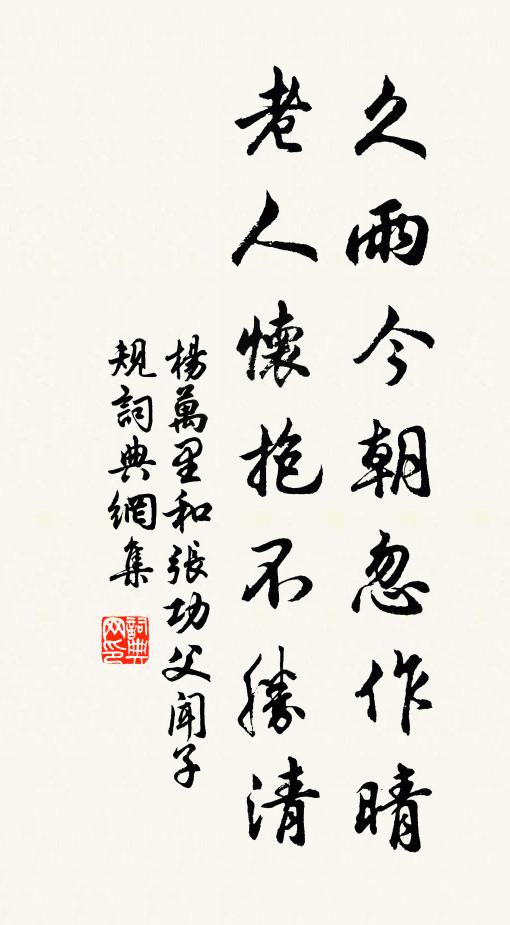 久雨今朝忽作晴
老人懷抱不勝清
楊萬里和張功父聞子
規詞典網集
詞典
网印